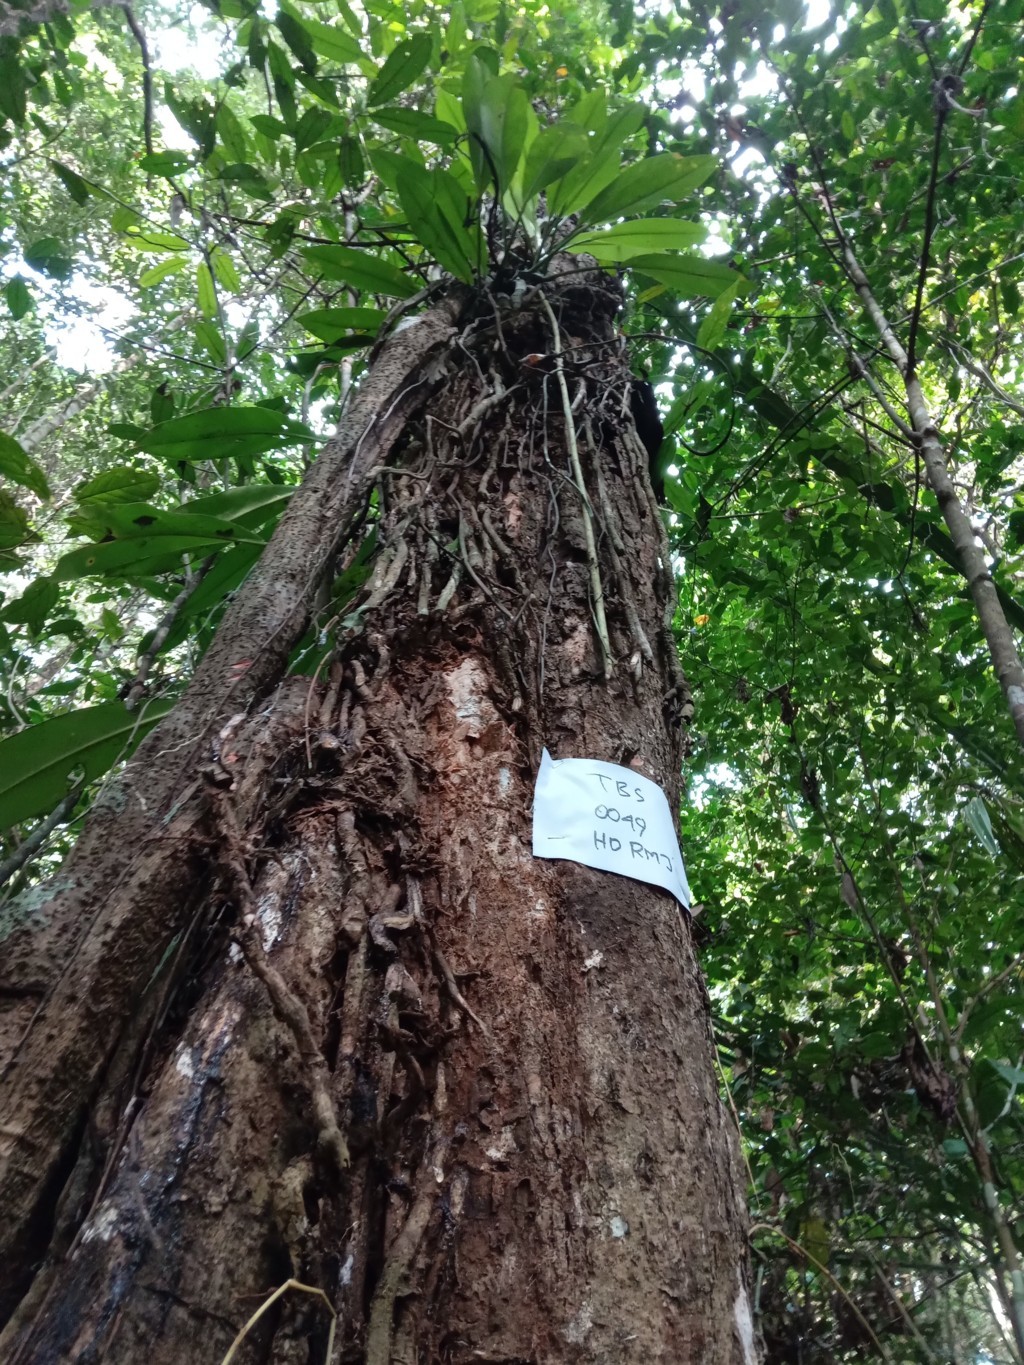 TBS
0049
HD RMJ